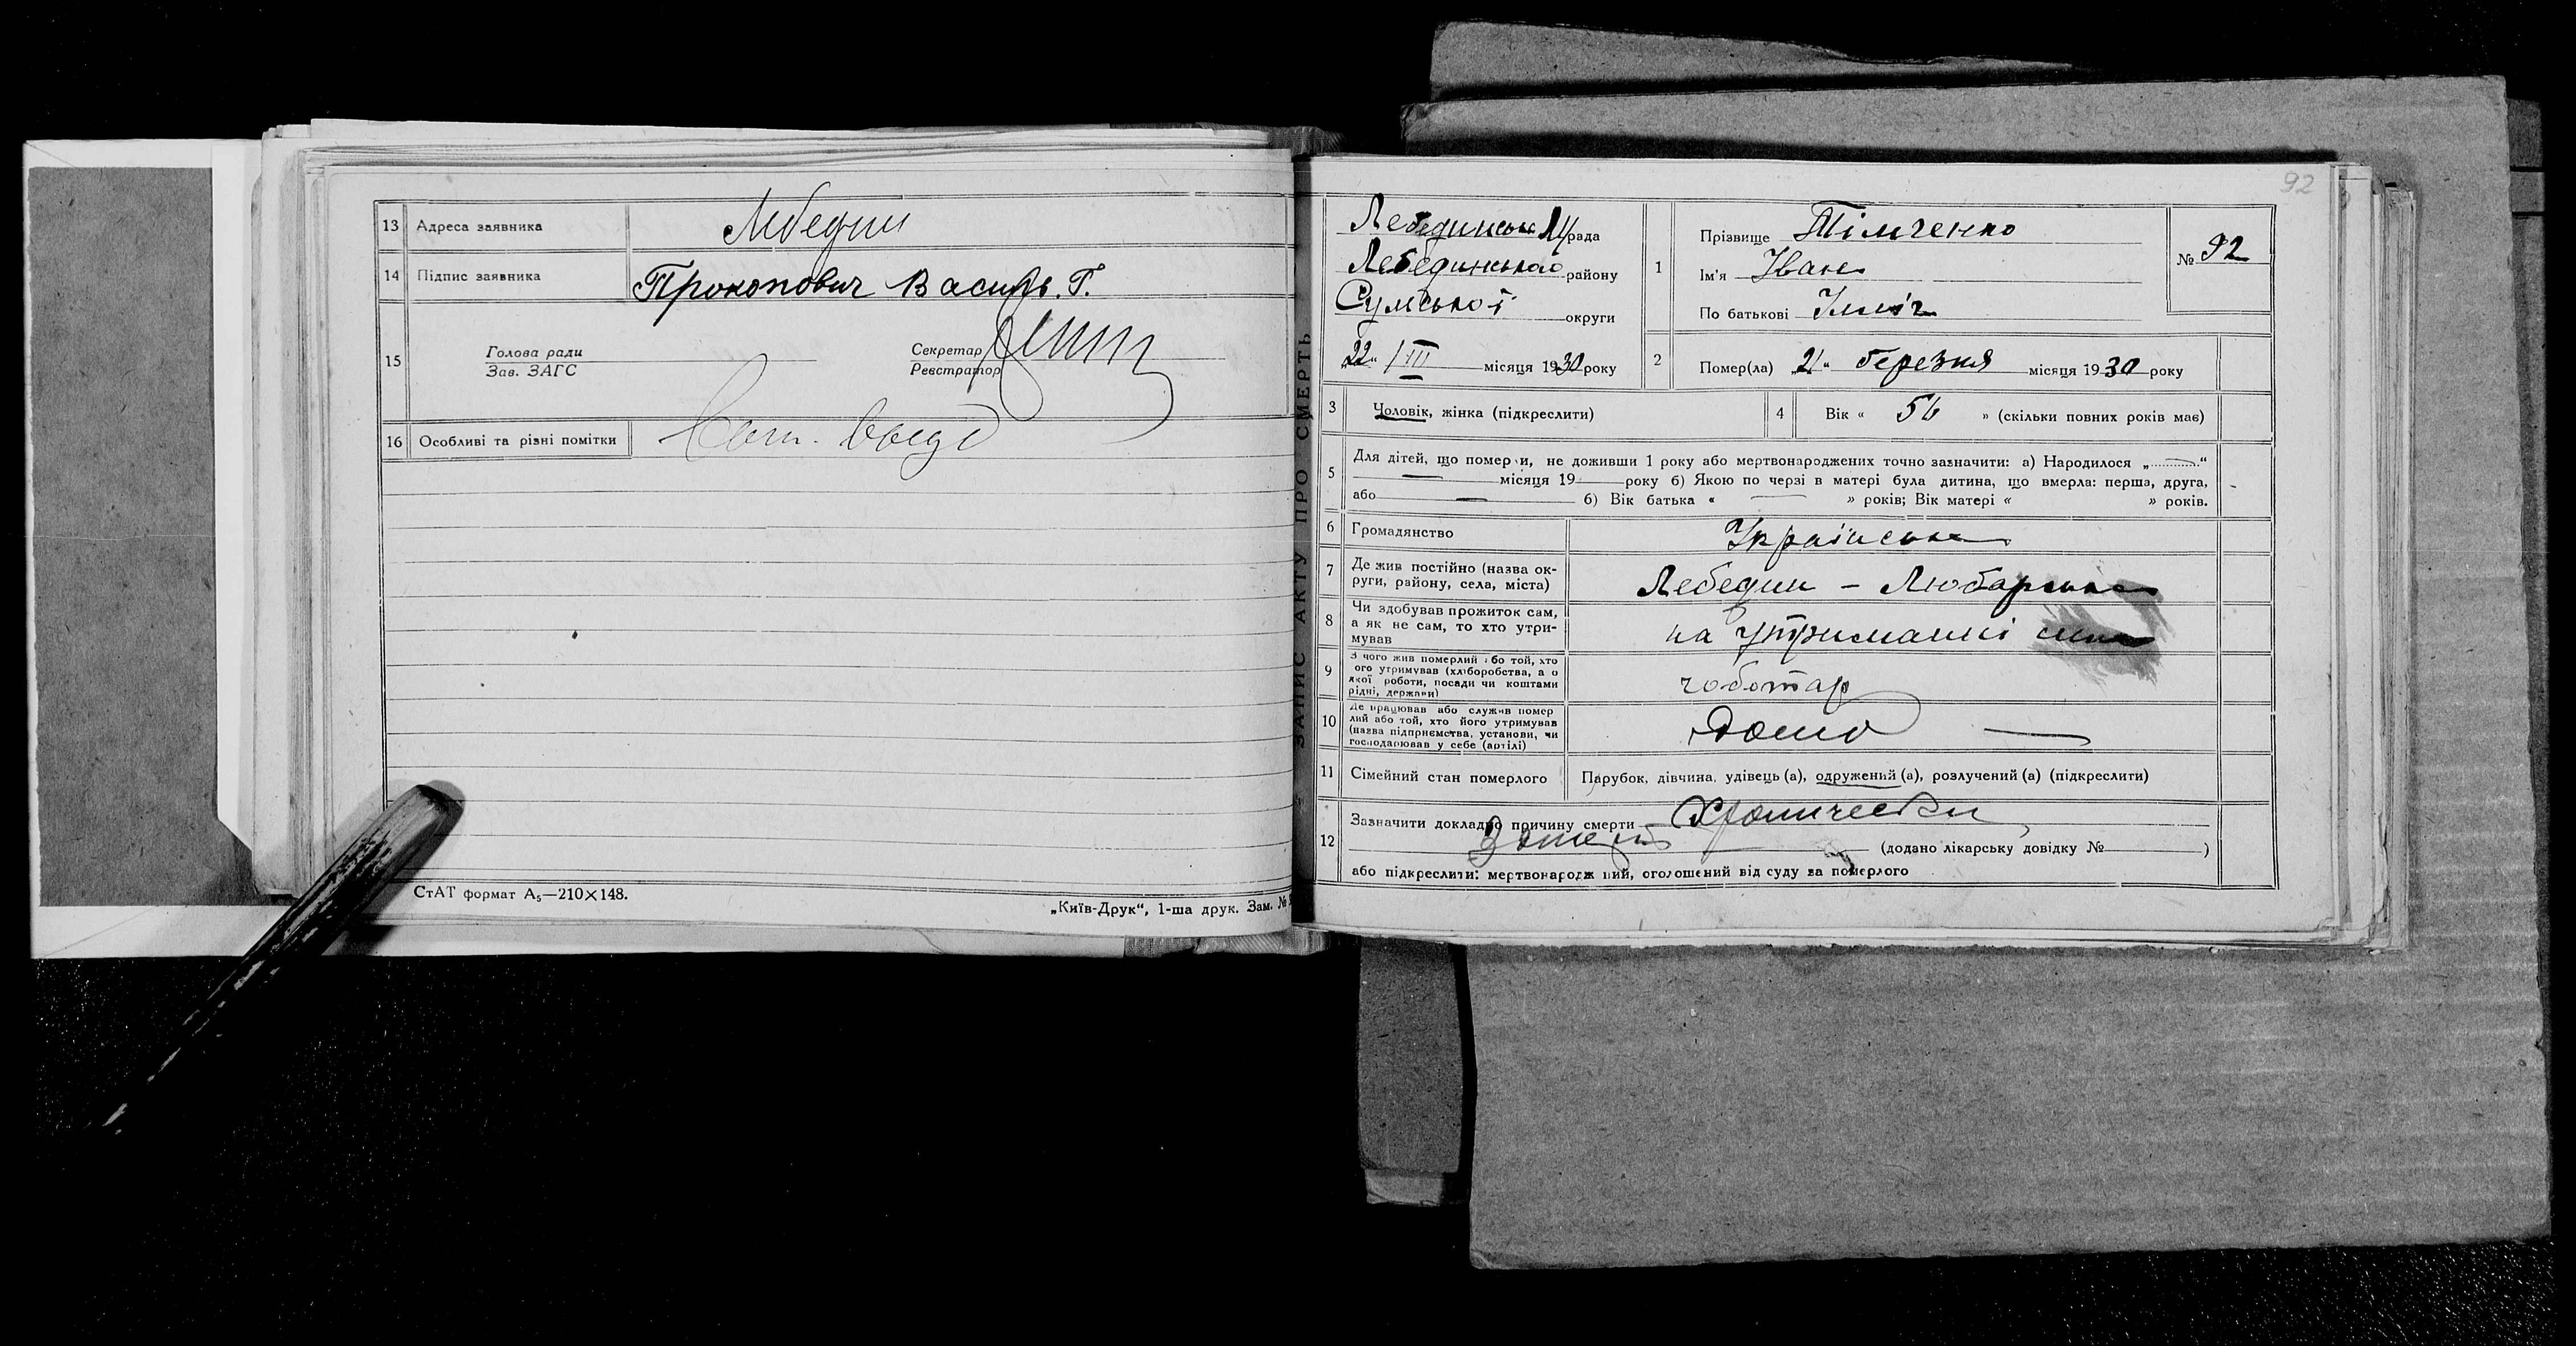 13 Адреса заявника Лебедин
14 Підпис заявника Прокопович Василь. Г.
15 Голова ради
Зав. ЗАГС
Секретар
Реєстратор
16 Особливі та різні помітки
СтАТ формат А₅—210×148.
„Київ-Друк“, 1-ша друк. Зам. №
ЗАПИС АКТУ ПРО СМЕРТЬ
92
Лебединська рада
Лебединського району
Сумської округи
„22“ III місяця 1930 року
1 Прізвище Тімченко
Ім'я Іван
По батькові Ілліч
№ 92
2 Помер(ла) „21“ березня місяця 1930 року
3 Чоловік, жінка (підкреслити)
4 Вік « 56 » (скільки повних років має)
5 Для дітей, що померли, не доживши 1 року або мертвонароджених точно зазначити: а) Народилося „ — “
— місяця 19 — року б) Якою по черзі в матері була дитина, що вмерла: перша, друга,
або — б) Вік батька « — » років; Вік матері « » років.
6 Громадянство Українське
7 Де жив постійно (назва ок-
руги, району, села, міста) Лебедин –
8 Чи здобував прожиток сам,
а як не сам, то хто утри-
мував на утриманні сина
9 З чого жив померлий або той, хто
ого утримував (хліборобства, а о
якої роботи, посади чи коштами
рідні, держави) чоботар
10 Де працював або служив помер
лий або той, хто його утримував
(назва підприємства, установи, чи
господарював у себе (артілі) Дома —
11 Сімейний стан померлого Парубок, дівчина, удівець (а), одружений (а), розлучений (а) (підкреслити)
12 Зазначити докладно причину смерти – Хронически
(додано лікарську довідку № )
або підкреслити: мертвонародж ний, оголошений від суду за померлого